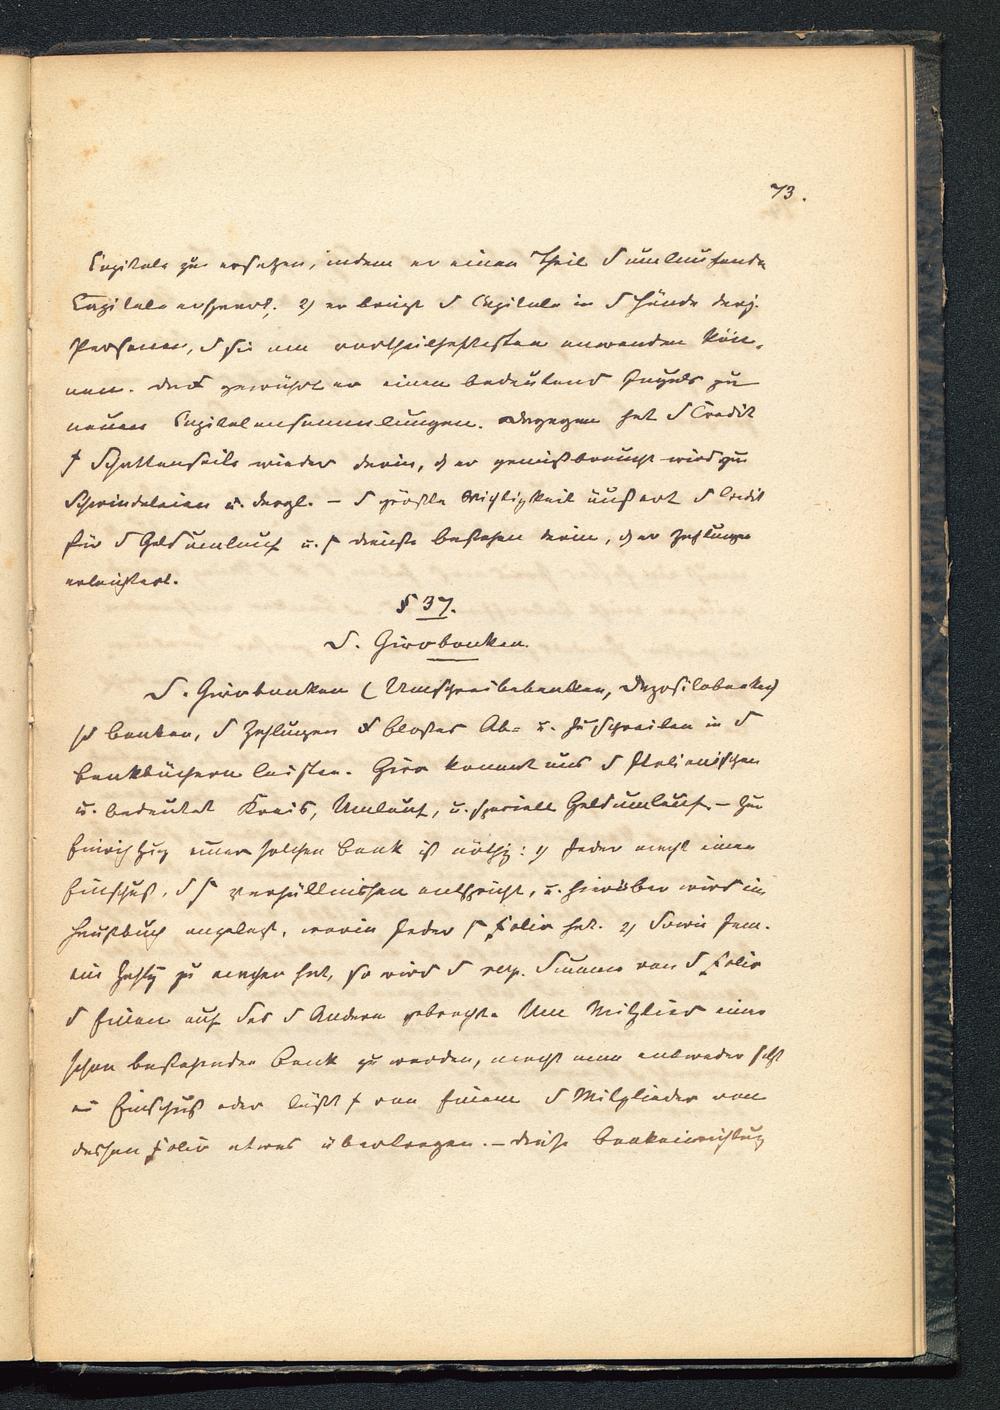 73.
Capitale zu ersetzen, indem er einen Theil d umlaufende
Capitals erspart. 2) er bringt d Capitale in d Hände derj.
Personen, d sie am vortheilhaftesten anwenden kön-
nen. gewährt er einen bedeutend zu
neuen Capitalansammlungen. Dagegen hat d Credit
Schattenseite wieder darin, er gemißbraucht wird zu
Schwindeleien u. dergl. – d größte Wichtigkeit äußert d Credit
für d Geldumlauf u. bestehen darin, er Zahlungen
erleichtert.
§ 37.
D. Girobanken.
D. Girobanken (Umschreibebanken, Depositobanken)
Banken, d Zahlungen bloßes Ab= u. Zuschreiben in d
Bankbüchern leisten. Giro kommt aus d Italienischen
u. bedeutet Kreis, Umlauf, u. speciell Geldumlauf. – Zur
Einrichtung einer solchen Bank ist nöthig: 1) Jeder macht einen
Einschuß, d Verhältnissen entspricht, u. hierüber wird ein
Hauptbuch angelegt, worin Jeder Folio hat. 2) Sowie Jem.
eine Zahlg zu machen hat, so wird d resp. Summe von d Folio
d Einen auf das d Andern gebracht. Um Mitglied einer
schon bestehenden Bank zu werden, macht man entweder selbst
Einschuß oder läßt von Einem d Mitglieder von
dessen Folio etwas übertragen. – Diese Bankeinrichtung